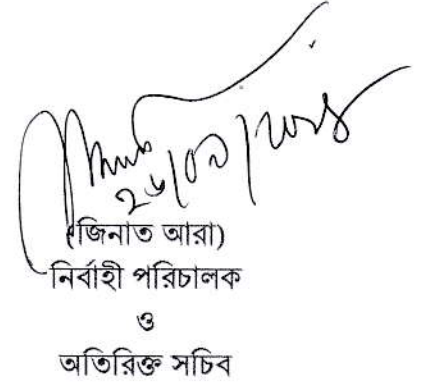 (জিনাত আরা)
নির্বাহী পরিচালক
ও
অতিরিক্ত সচিব